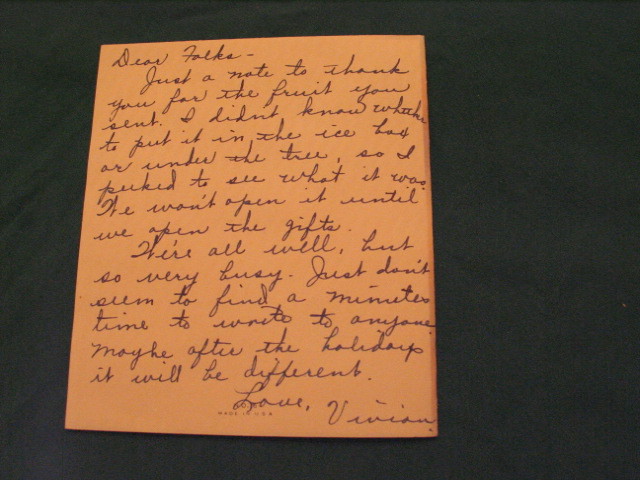 Dear Folks -
Just a note to thank
you for the fruit you
sent. I didn't know whether
to put it in the ice box
or under the tree, so I
peeked to see what it was.
We won't open it until
we open the gifts.
We're all well, but
so very busy. Just don't
seem to find a minutes
time to write to anyone.
Maybe after the holidays
it will be different.
Love, Vivian.
MADE IN U.S.A.